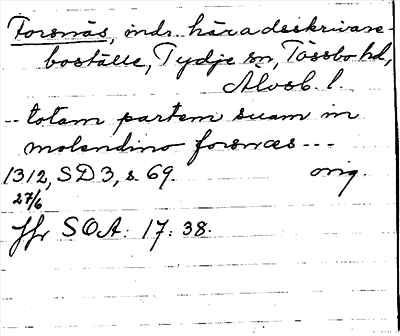 Forsnäs, indr. häradsskrivare-
boställe, Tydje sn, Tössbo hd,
Älvsb. l.
-- totam partem suam in
molendino forsnæs ---
1312, SD 3, s. 69. orig.
27/6
Jfr SOÄ: 17: 38.